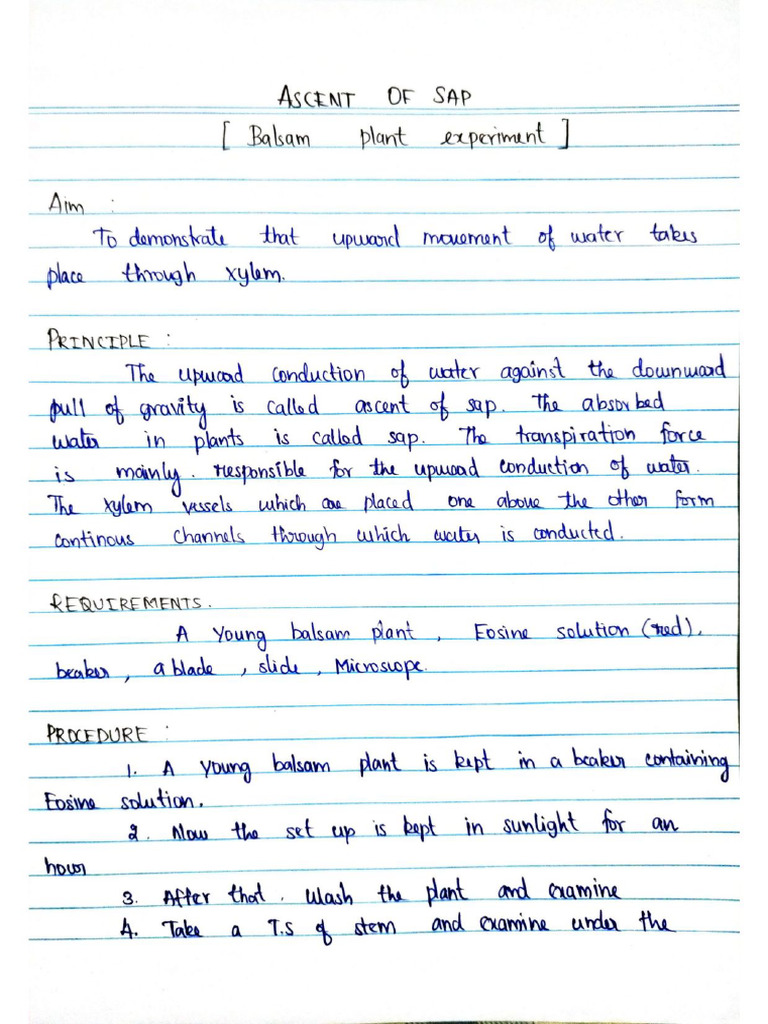 ASCENT OF SAP
[ Balsam plant experiment ]
Aim :
To demonstrate that upward movement of water takes
place through xylem.
PRINCIPLE :
The upward conduction of water against the downward
pull of gravity is called ascent of sap. The absorbed
water in plants is called sap. The transpiration force
is mainly. responsible for the upward conduction of water.
The xylem vessels which are placed one above the other form
continous channels through which water is conducted.
REQUIREMENTS.
A young balsam plant, Eosine solution (red),
beaker, a blade, slide, Microscope.
PROCEDURE :
1. A young balsam plant is kept in a beaker containing
Eosine solution.
2. Now the set up is kept in sunlight for an
hour
3. After that. Wash the plant and examine
4. Take a T.S of stem and examine under the